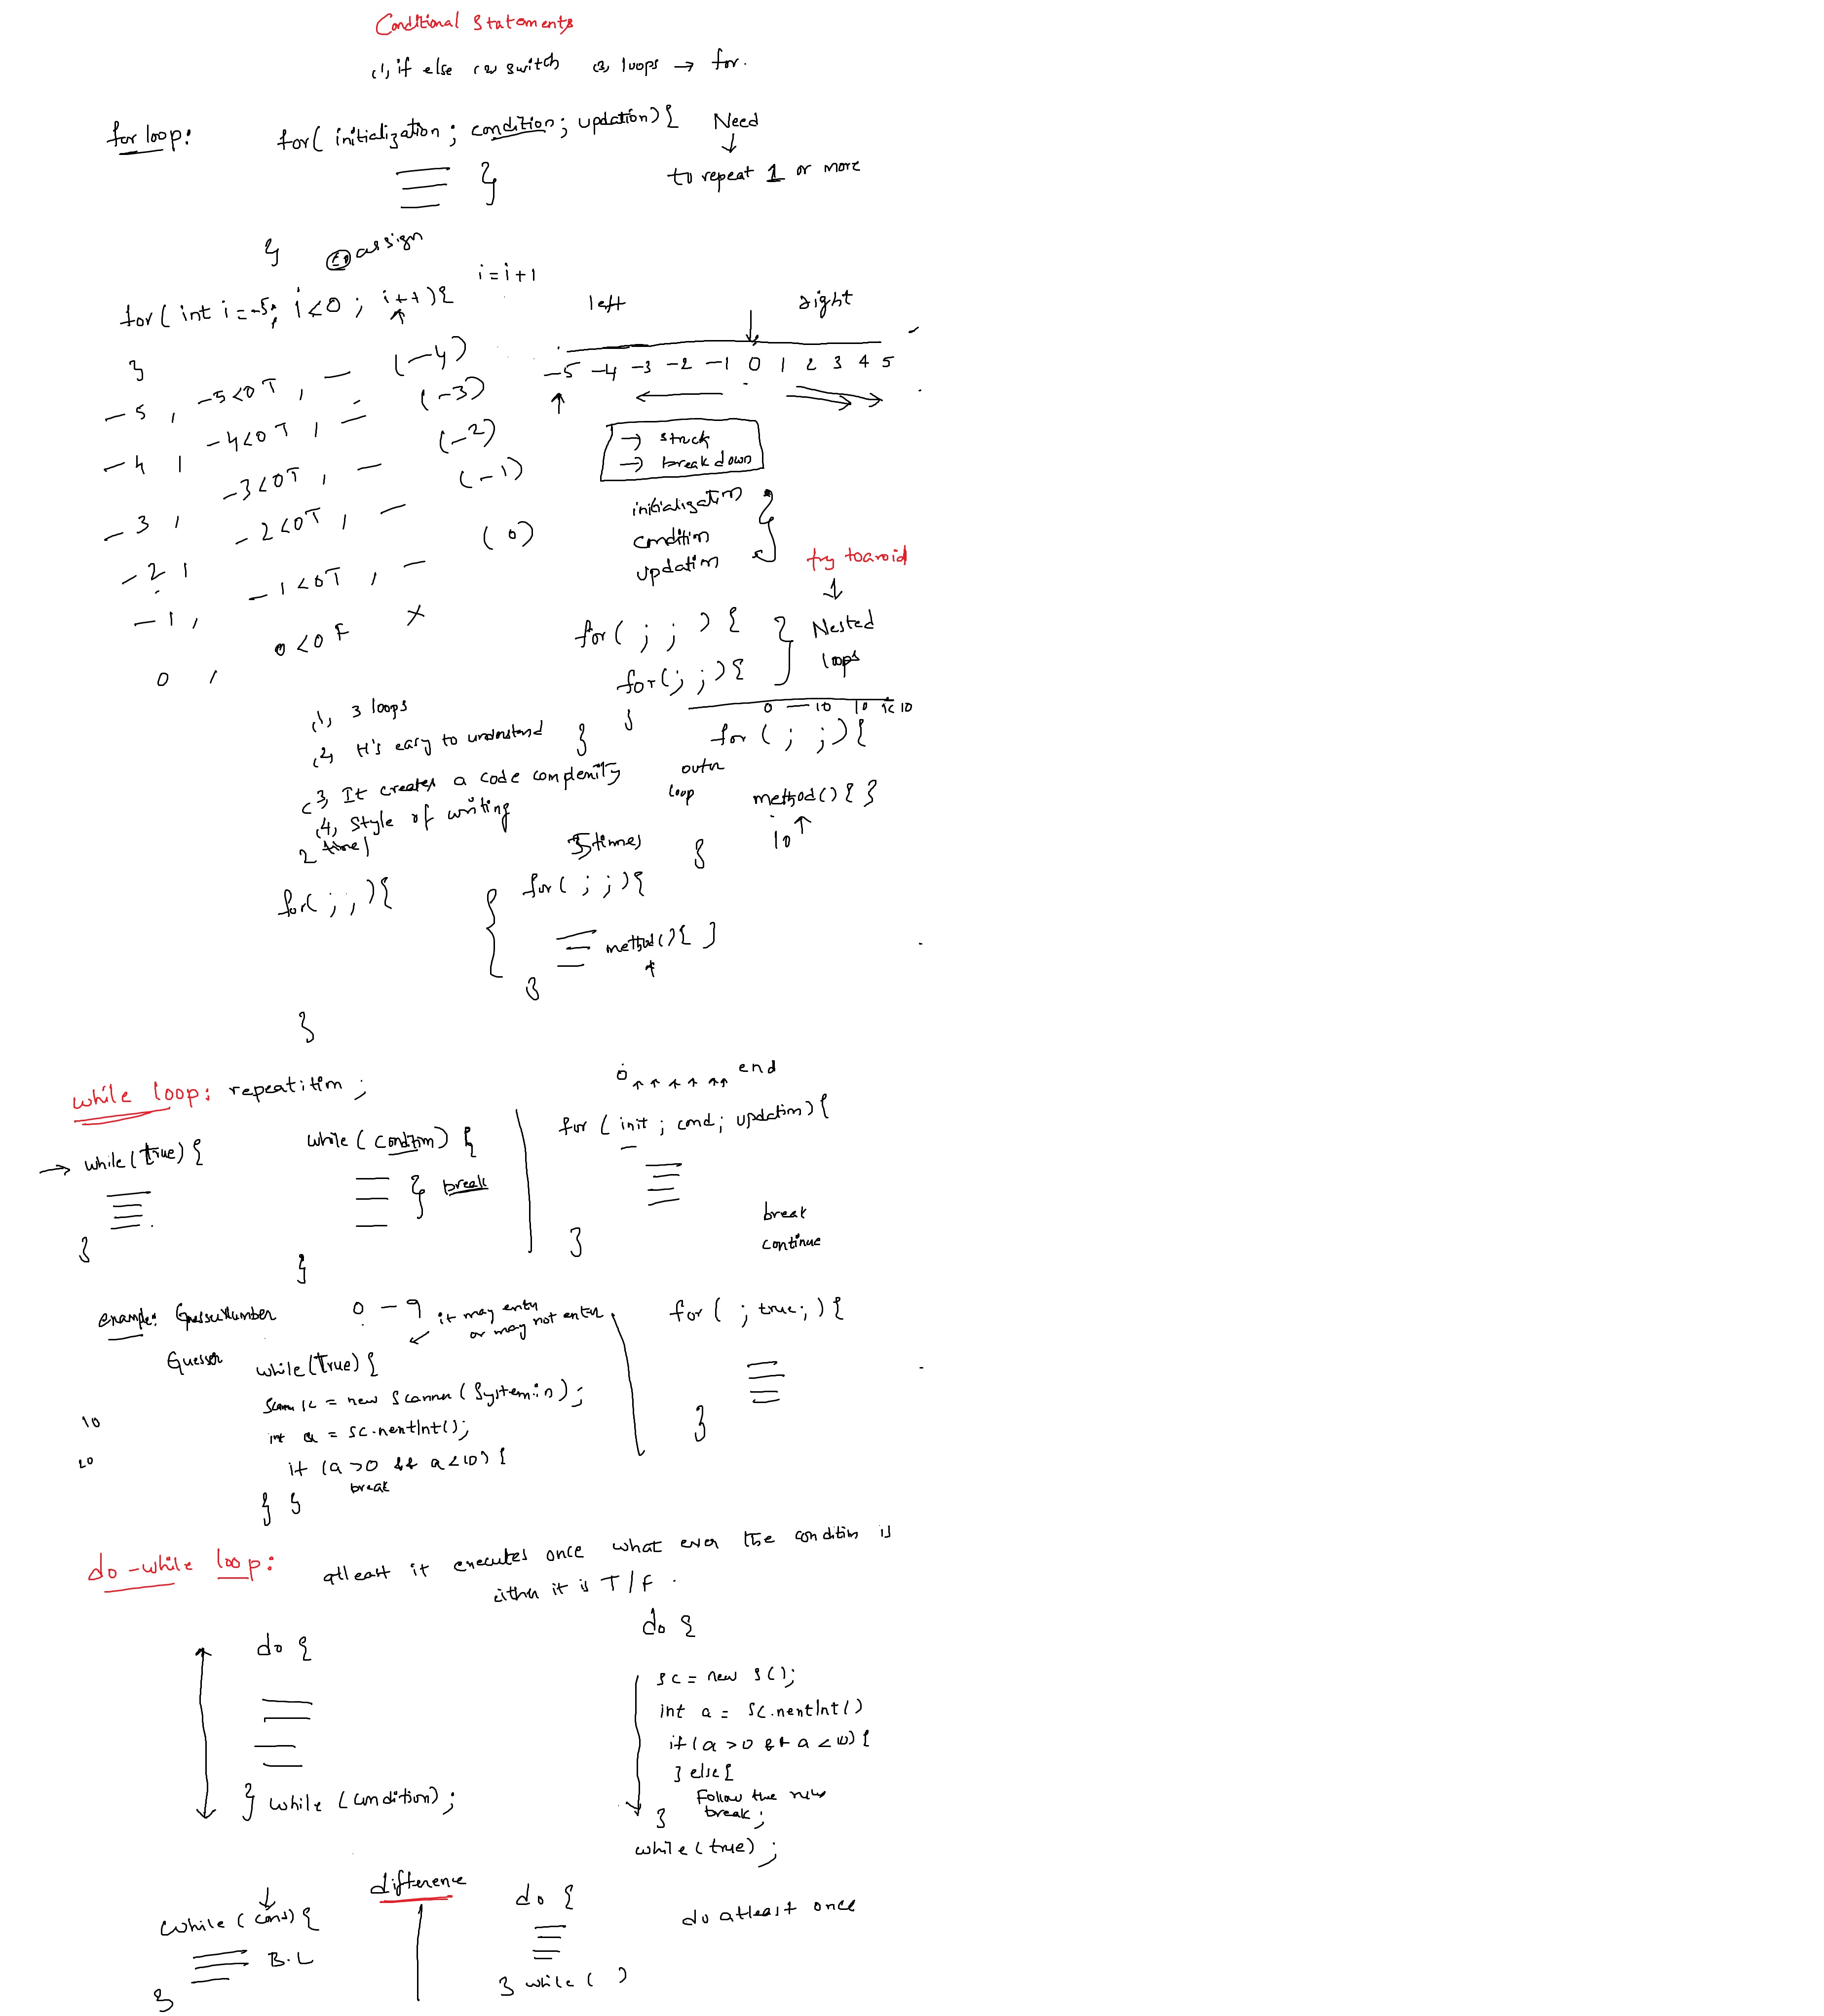 Conditional Statements
(1) if else (2) switch (3) loops → for.
for loop: for( initialization ; condition ; updation){ Need
↓
to repeat 1 or more
}
}
assign
i=i+1
for( int i=-5; i<0 ; i++){
}
left right
-5 -4 -3 -2 -1 0 1 2 3 4 5
-5 , -5<0 T , — (-4)
-4 , -4<0 T , — (-3)
-3 , -3<0T , — (-2)
-2 , -2<0T , — (-1)
-1 , -1<0T , — (0)
0 , 0<0 F X
→ struck
→ break down
initialization
condition
updation
try toavoid
↓
for( ; ; ) { Nested
for(; ;){ loops
}
}
(1) 3 loops
(2) It's easy to understand
(3) It creates a code complexity
(4) Style of writing
0 — 10 10 10
for ( ; ;){
outer
loop
method(){ }
10 ↑
}
2 times
for( ; ; ){
5times
for( ; ;){
method(){ }
}
}
while loop: repeatition ;
0 end
→ while(true) {
}
while ( condition) {
break
}
for ( init ; cond; updation){
}
break
continue
example: GuesserNumber 0 - 9 it may enter
or may not enter
Guesser
while(True) {
sc = new Scanner( System.in) ;
int a = sc.nextInt();
if (a >0 && a<10) {
break
} }
10
20
for ( ; true; ) {
}
do-while loop: atleast it executes once what ever the condition is
either it is T/F .
do {
} while (condition) ;
do {
sc = new s();
int a = sc.nextInt()
if(a >0 && a <10) {
} else{
Follow the rules
break;
}
while(true) ;
difference
while ( cond) {
B.L
}
do {
} while ( )
do atleast once